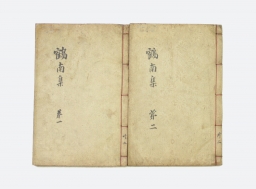 鶴南集
卷一
鶴南集
卷二